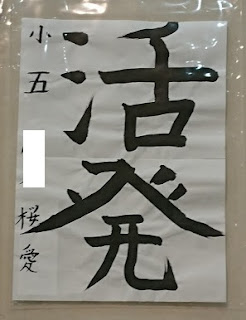 活発
小五 桜愛